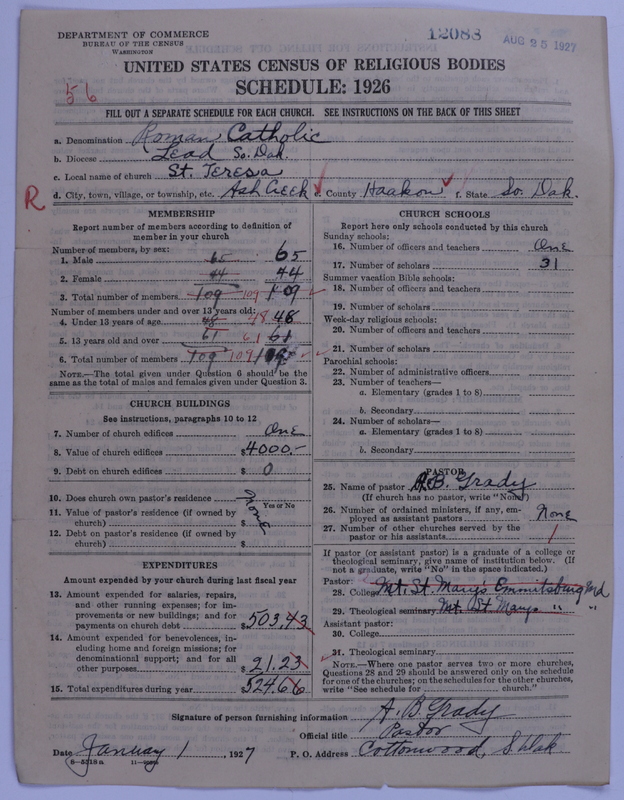 DEPARTMENT OF COMMERCE
BUREAU OF THE CENSUS
WASHINGTON
12088
AUG 25 1927
UNITED STATES CENSUS OF RELIGIOUS BODIES
SCHEDULE: 1926
56
FILL OUT A SEPARATE SCHEDULE FOR EACH CHURCH. SEE INSTRUCTIONS ON THE BACK OF THIS SHEET
a. Denomination Roman Catholic
b. Diocese Lead So. Dak.
c. Local name of church St. Teresa
R
d. City, town, village, or township, etc. Ash Creek e. County Haakon f. State So. Dak.
MEMBERSHIP
Report number of members according to definition of
member in your church
Number of members, by sex:
1. Male 65 65
2. Female 44 44
3. Total number of members 109 109 109
Number of members under and over 13 years old:
4. Under 13 years of age 48 48 48
5. 13 years old and over 61 61 61
6. Total number of members 109 109 109
NOTE.—The total given under Question 6 should be the
same as the total of males and females given under Question 3.
CHURCH BUILDINGS
See instructions, paragraphs 10 to 12
7. Number of church edifices One
8. Value of church edifices $4000.-
9. Debt on church edifices $ 0
10. Does church own pastor's residence None
Yes or No
11. Value of pastor's residence (if owned by
church) $
12. Debt on pastor's residence (if owned by
church) $
EXPENDITURES
Amount expended by your church during last fiscal year
13. Amount expended for salaries, repairs,
and other running expenses; for im-
provements or new buildings; and for
payments on church debt $503,43
14. Amount expended for benevolences, in-
cluding home and foreign missions; for
denominational support; and for all
other purposes $21.23
15. Total expenditures during year $524.66
CHURCH SCHOOLS
Report here only schools conducted by this church
Sunday schools:
16. Number of officers and teachers One
17. Number of scholars 31
Summer vacation Bible schools:
18. Number of officers and teachers
19. Number of scholars
Week-day religious schools:
20. Number of officers and teachers
21. Number of scholars
Parochial schools:
22. Number of administrative officers
23. Number of teachers—
a. Elementary (grades 1 to 8)
b. Secondary
24. Number of scholars—
a. Elementary (grades 1 to 8)
b. Secondary
PASTOR
25. Name of pastor A.B. Grady
(If church has no pastor, write "None")
26. Number of ordained ministers, if any, em-
ployed as assistant pastors None
27. Number of other churches served by the
pastor or his assistants 1
If pastor (or assistant pastor) is a graduate of a college or
theological seminary, give name of institution below. (If
not a graduate, write "No" in the space indicated.)
Pastor:
28. College Mt. St. Marys Emmitsburg Md
29. Theological seminary Mt. St. Marys " "
Assistant pastor:
30. College
31. Theological seminary
NOTE.—Where one pastor serves two or more churches,
Questions 28 and 29 should be answered only on the schedule
for one of the churches; on the schedules for the other churches,
write "See schedule for church."
Signature of person furnishing information A. B. Grady
Official title Pastor
Date January 1, 1927 P. O. Address Cottonwood, S Dak
8—5218a